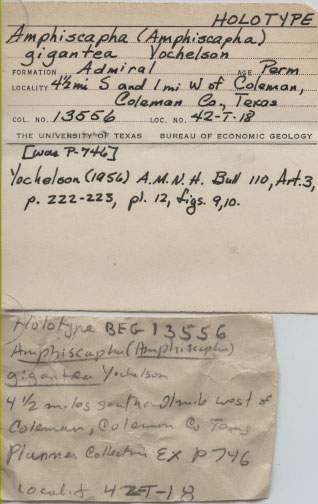 HOLOTYPE
Amphiscapha (Amphiscapha)
gigantea Yochelson
FORMATION Admiral AGE Perm
LOCALITY 4½ mi S and 1 mi W of Coleman,
Coleman Co., Texas
COL. NO. 13556 LOC. NO. 42-T-18
THE UNIVERSITY OF TEXAS BUREAU OF ECONOMIC GEOLOGY
[was P-746]
Yochelson (1956) A.M.N.H. Bull 110, Art. 3,
p. 222-223, pl. 12, figs. 9, 10.
Holotype BEG 13556
Amphiscapha (Amphiscapha)
gigantea Yochelson
4 1/2 miles south and 1 mile west of
Coleman, Coleman Co Texas
Plummer Collection EX P 746
Locality 42-T-18